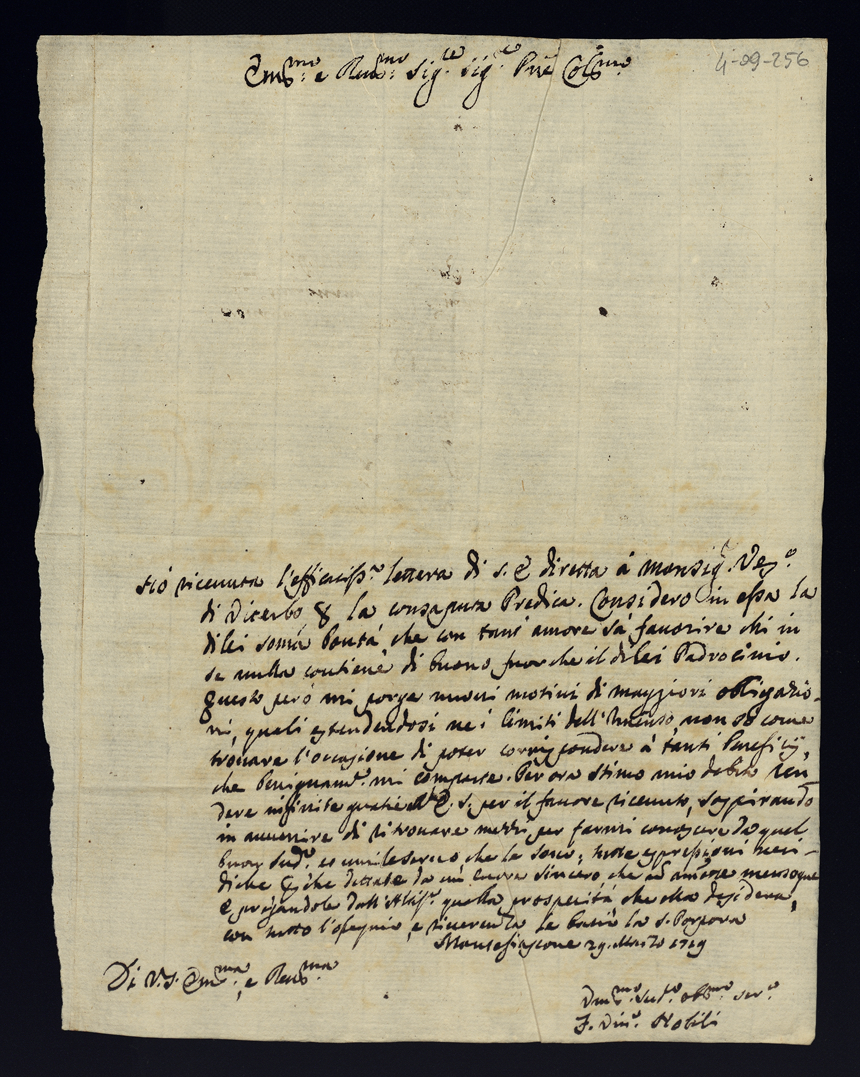 4-09-256
Em.mo e Rev.mo Sig.re Sig.re Pne Col.mo
Hò ricevuta l'efficatiss.a lettera di S. E. directa à Monsig.r Ves.o
di Viterbo & la consaputa Predica. Considero in essa la
di lei somà bontà, che con tant' amore sà favorire chi in
se nulla contiene di buono fuor che il di lei Padrocinio.
Questo però mi porge nuovi motivi di maggiori obligatio-
ni, quali estendendosi ne i limiti dell' non sò come
trovare l'occasione di poter corrispondere à tanti benefitij,
che benignam.e mi comparte. Per ora stimo mio debito ren
dere infinite gratie à E. S. per il favore ricevuto, sospirando
in avvenire di ritrovare mezzi per farmi conoscere da quel
buon Sud.o et umile servo che le sono; tutte espressioni veri-
diche che dettate da un cuore sincero che
e pregandole dall' Altiss.o quella prosperità che ella desidera,
con tutto l'ossequio, e riverenza le bacio la S. Porpora
Montefiascone 29 Marzo 1719
Di V. S. Em.ma, e Rev.ma
Um.mo Sud.o obb.mo ser.e
F. Nobili